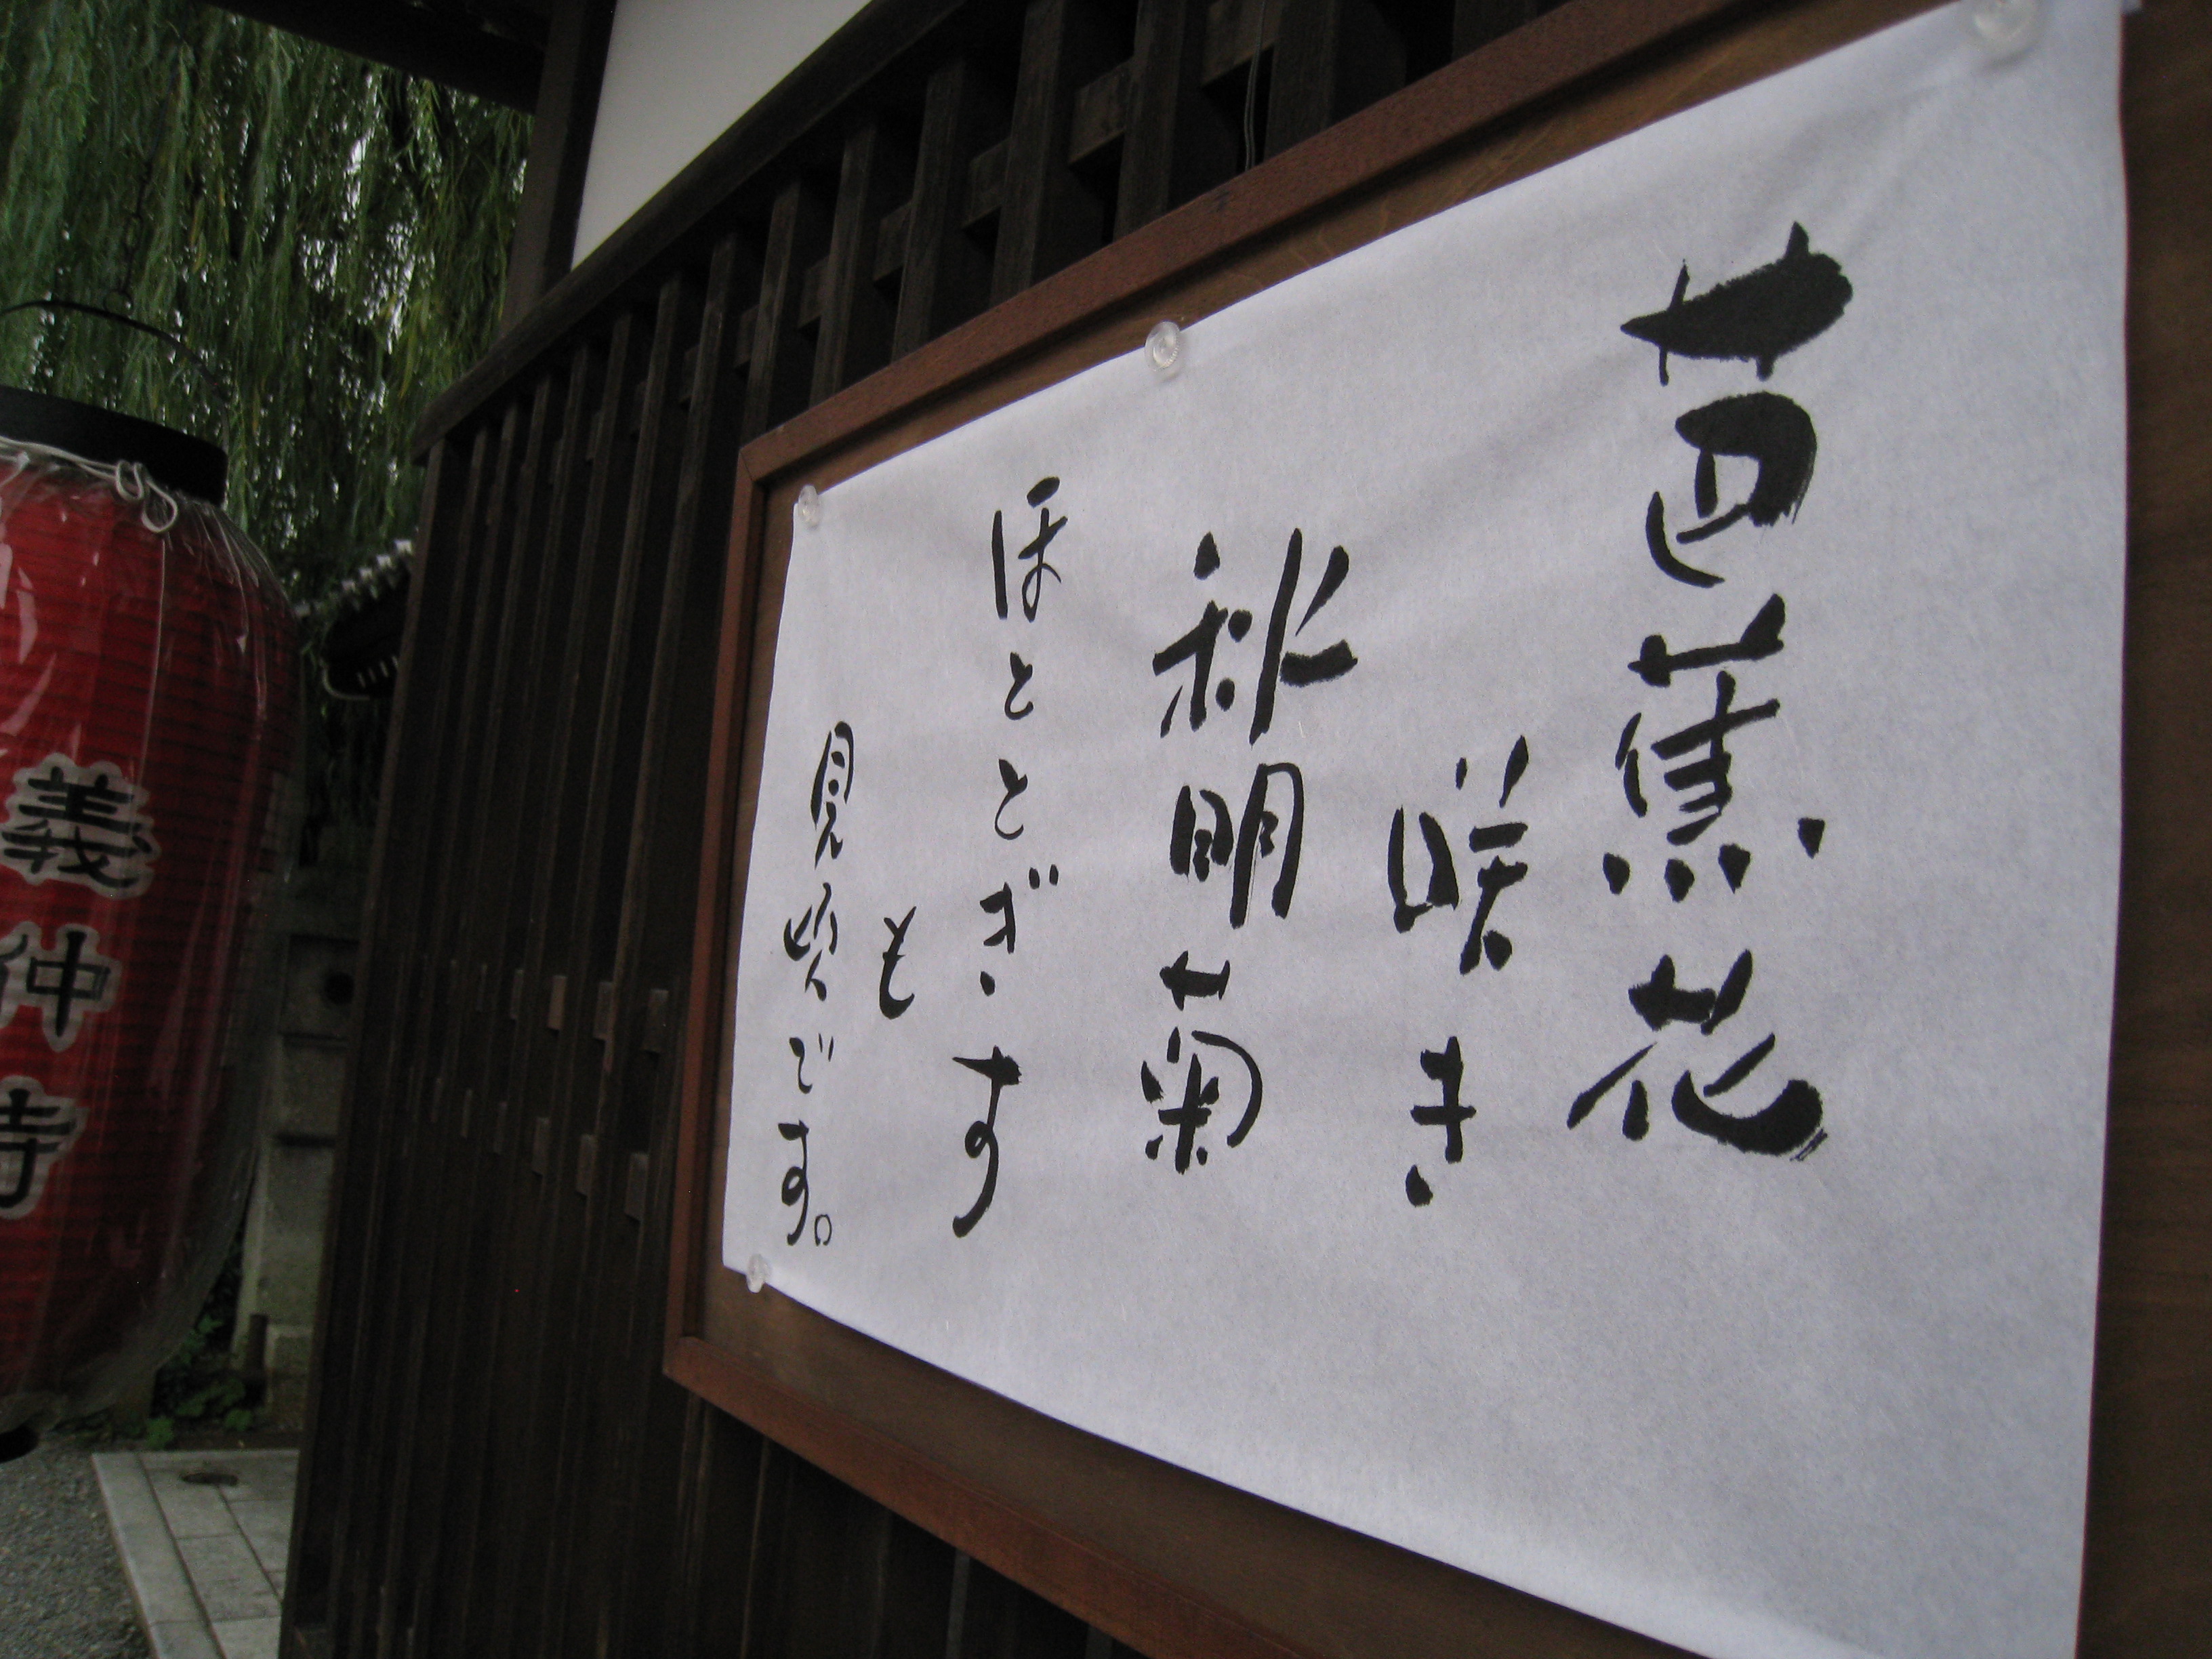 芭蕉花
咲き
秋明菊
ほととぎす
も
見頃です。
義仲寺